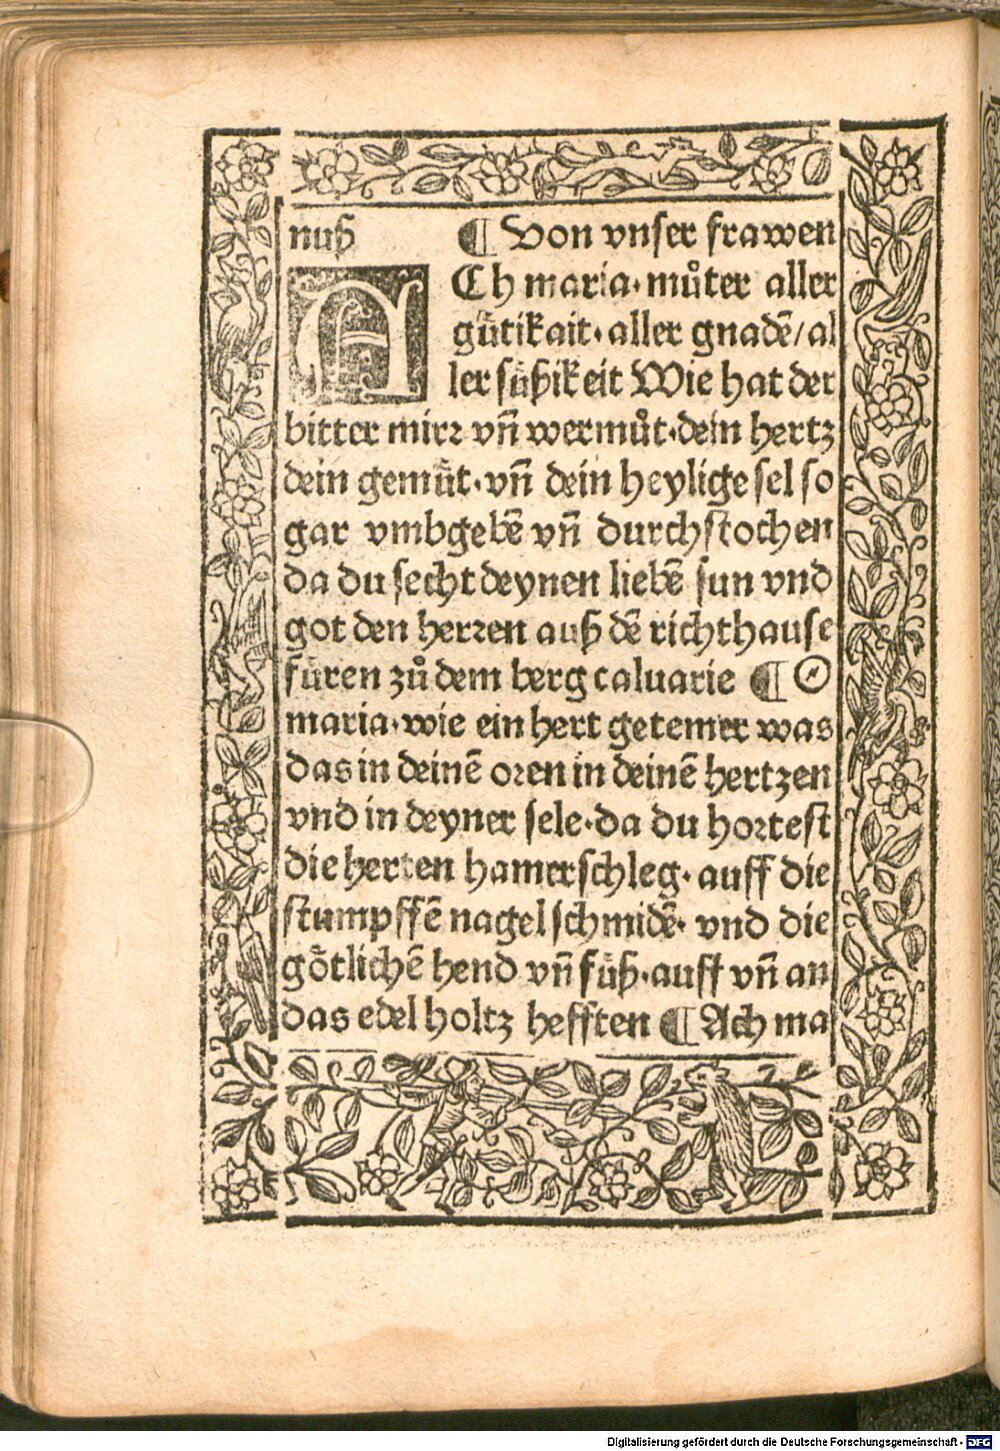 nuß ¶ Von vnser frawen
ACh maria· můter aller
gütikait· aller gnadē/al
ler süßikeit Wie hat der
bitter mirr vñ wermůt·dein hertz
dein gemüt·vñ dein heylige sel so
gar vmbgebē vñ durchstochen
da du secht deynen liebē sun vnd
got den herren auß dē richthause
füren zů dem berg caluarie ¶ O
maria·wie ein hert getemer was
das in deinē oren in deinē hertzen
vnd in deyner sele·da du hortest
die herten hamerschleg· auff die
stumpffē nagel schmidē· vnd die
götlichē hend vñ füß·auff vñ an
das edel holtz hefften ¶ Ach ma
Digitalisierung gefördert durch die Deutsche Forschungsgemeinschaft - DFG